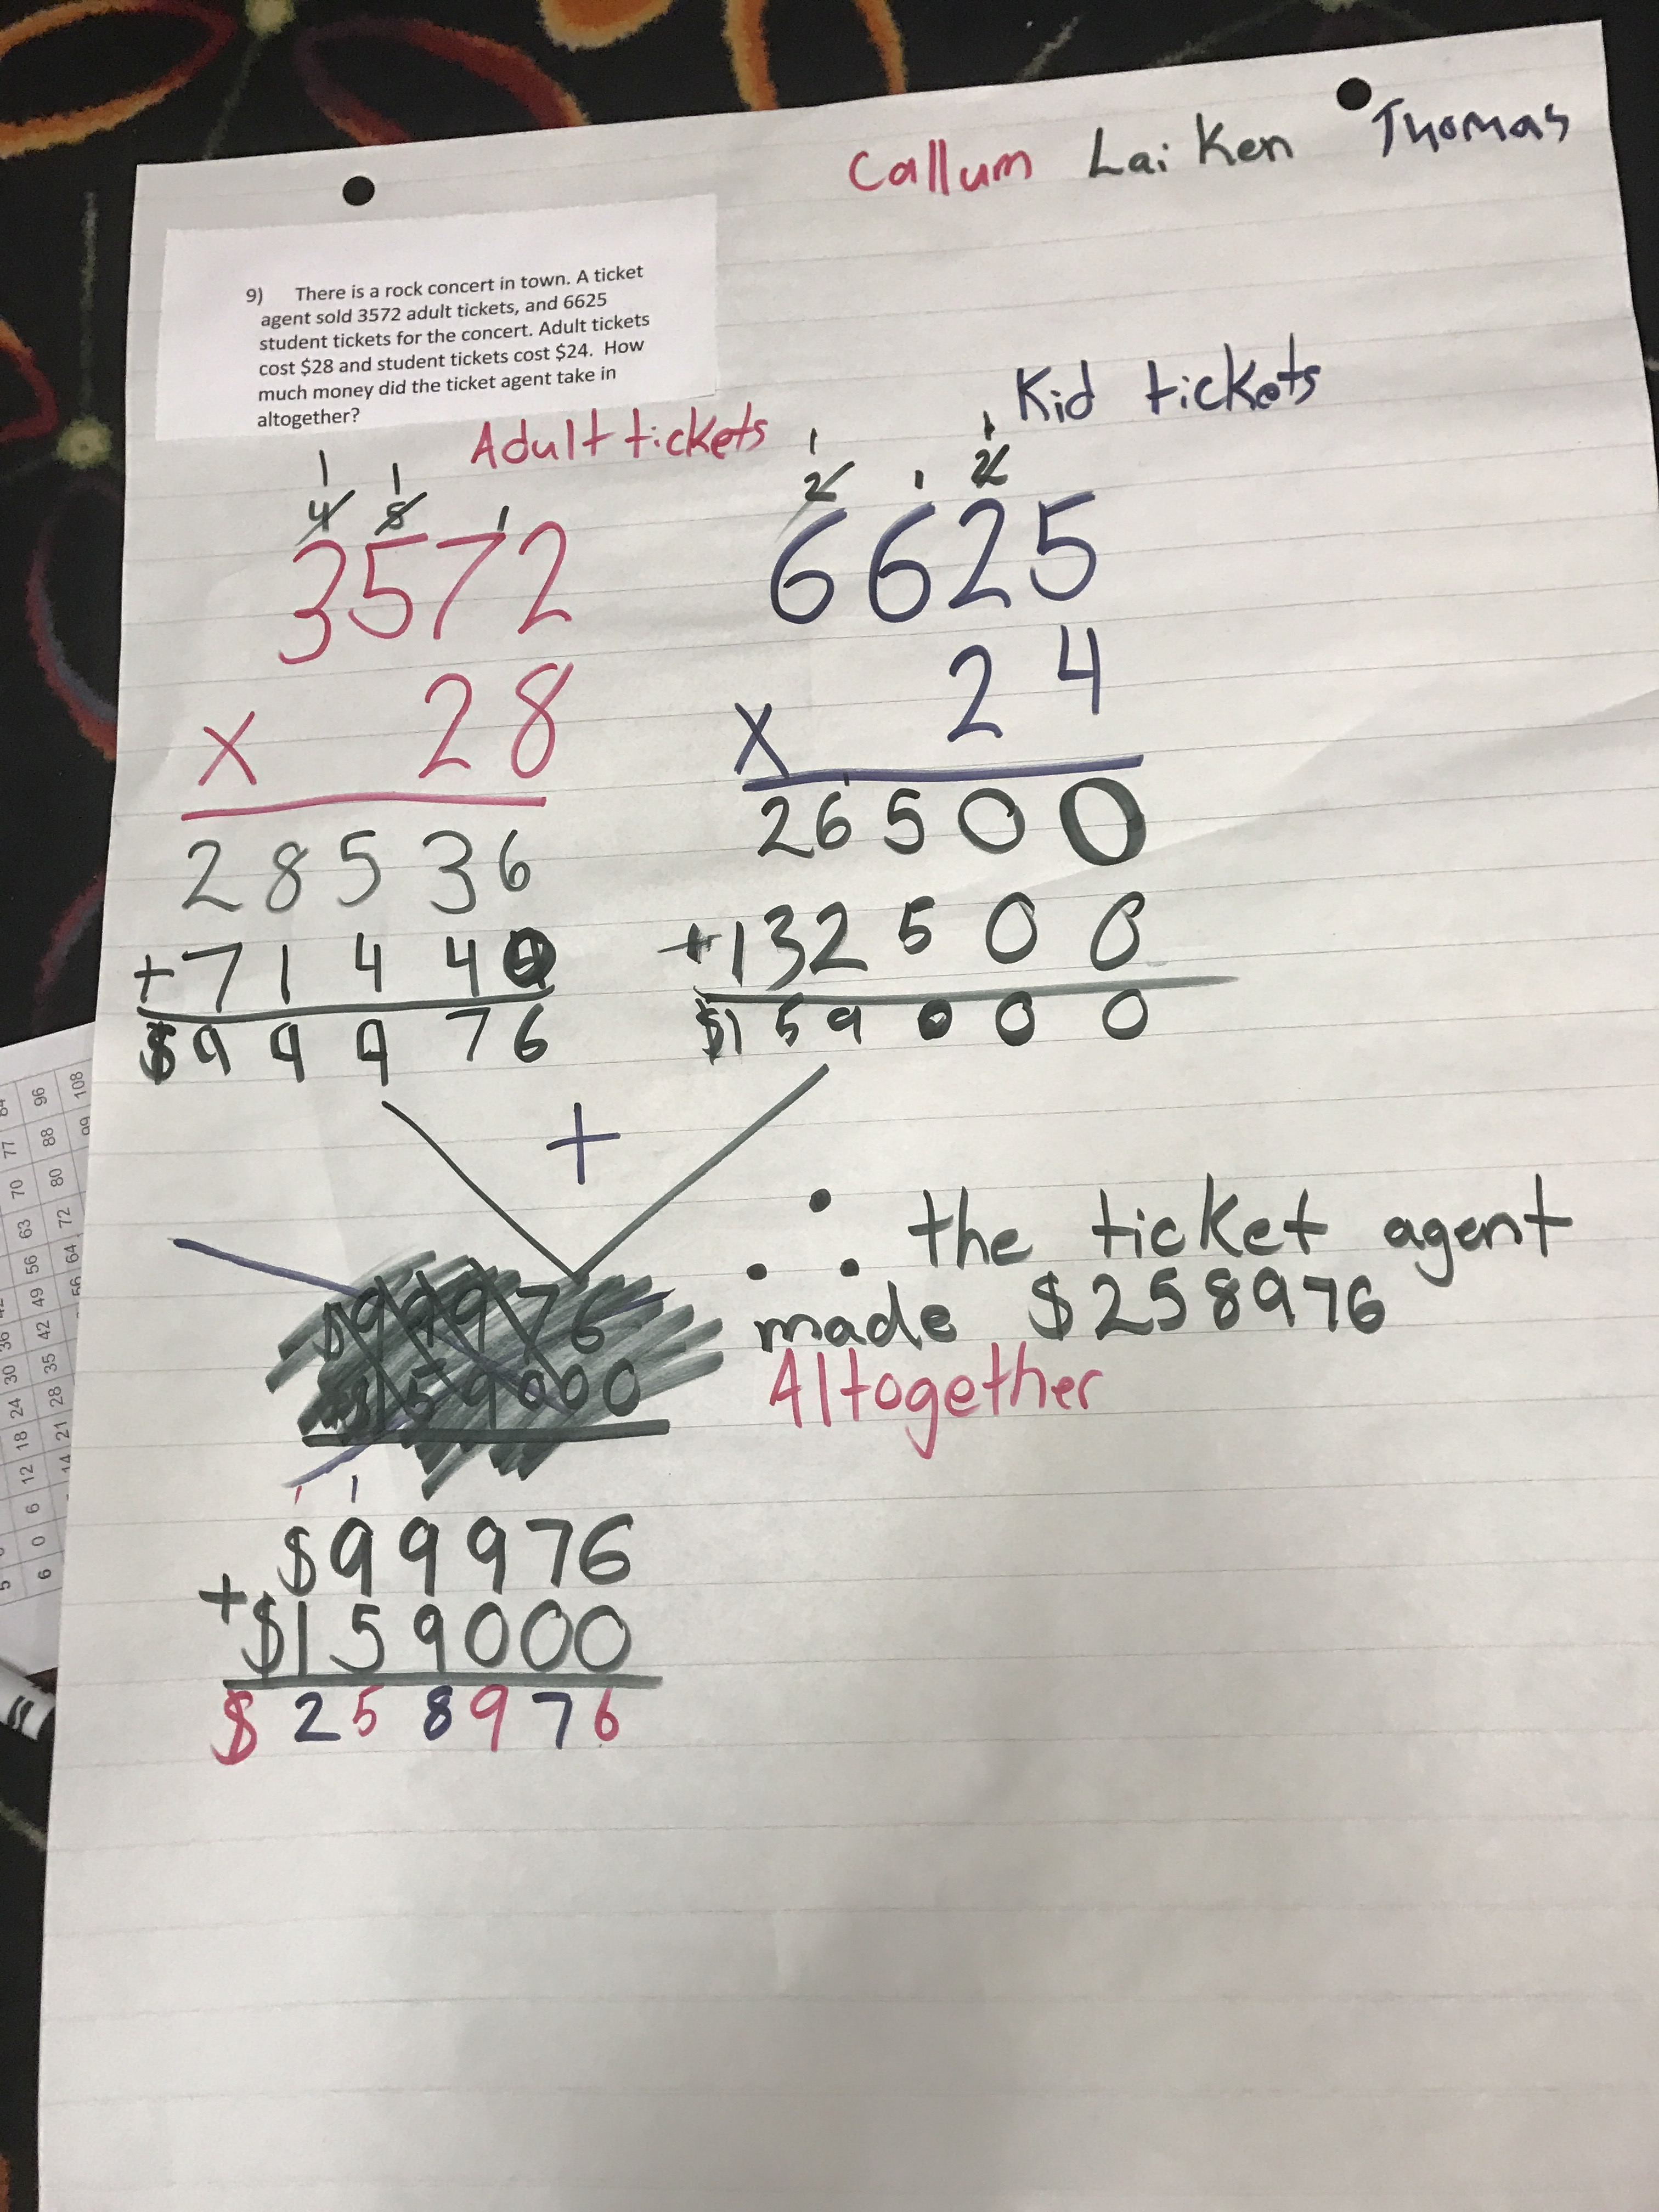 Callum Laiken Thomas
9) There is a rock concert in town. A ticket
agent sold 3572 adult tickets, and 6625
student tickets for the concert. Adult tickets
cost $28 and student tickets cost $24. How
much money did the ticket agent take in
altogether?
Adult tickets
1 1
4 5 1
3572
x 28
28536
+71440
$99976
Kid tickets
1 1
2 1 2
6625
x 24
1
26500
+132500
$159000
+
$99976
$159000
1 1
$99976
+$159000
$258976
∴ the ticket agent
made $258976
Altogether
84 96 108
77 88 99
70 80
63 72
56 64
49 56
42 35 42
36
30 28 35
24 21 28
18 14 21
12
6
0
6
5